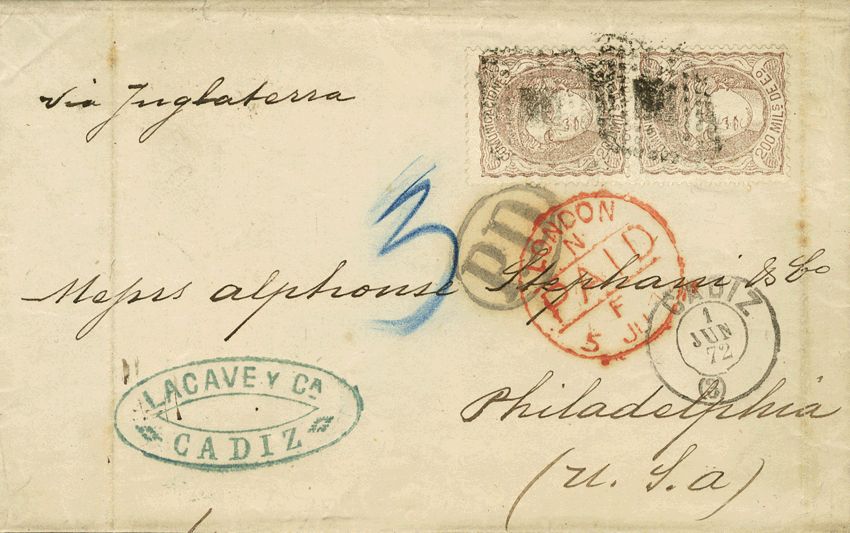 via Inglaterra
COMUNICACIONES
200 MILS DE Eº
3
PD
LONDON
N
PAID
F
5 JU
Messrs Alphonse Stephani & Co
CADIZ
1
JUN
72
(3)
LACAVE Y CA
CADIZ
Philadelphia
(U. S. A)